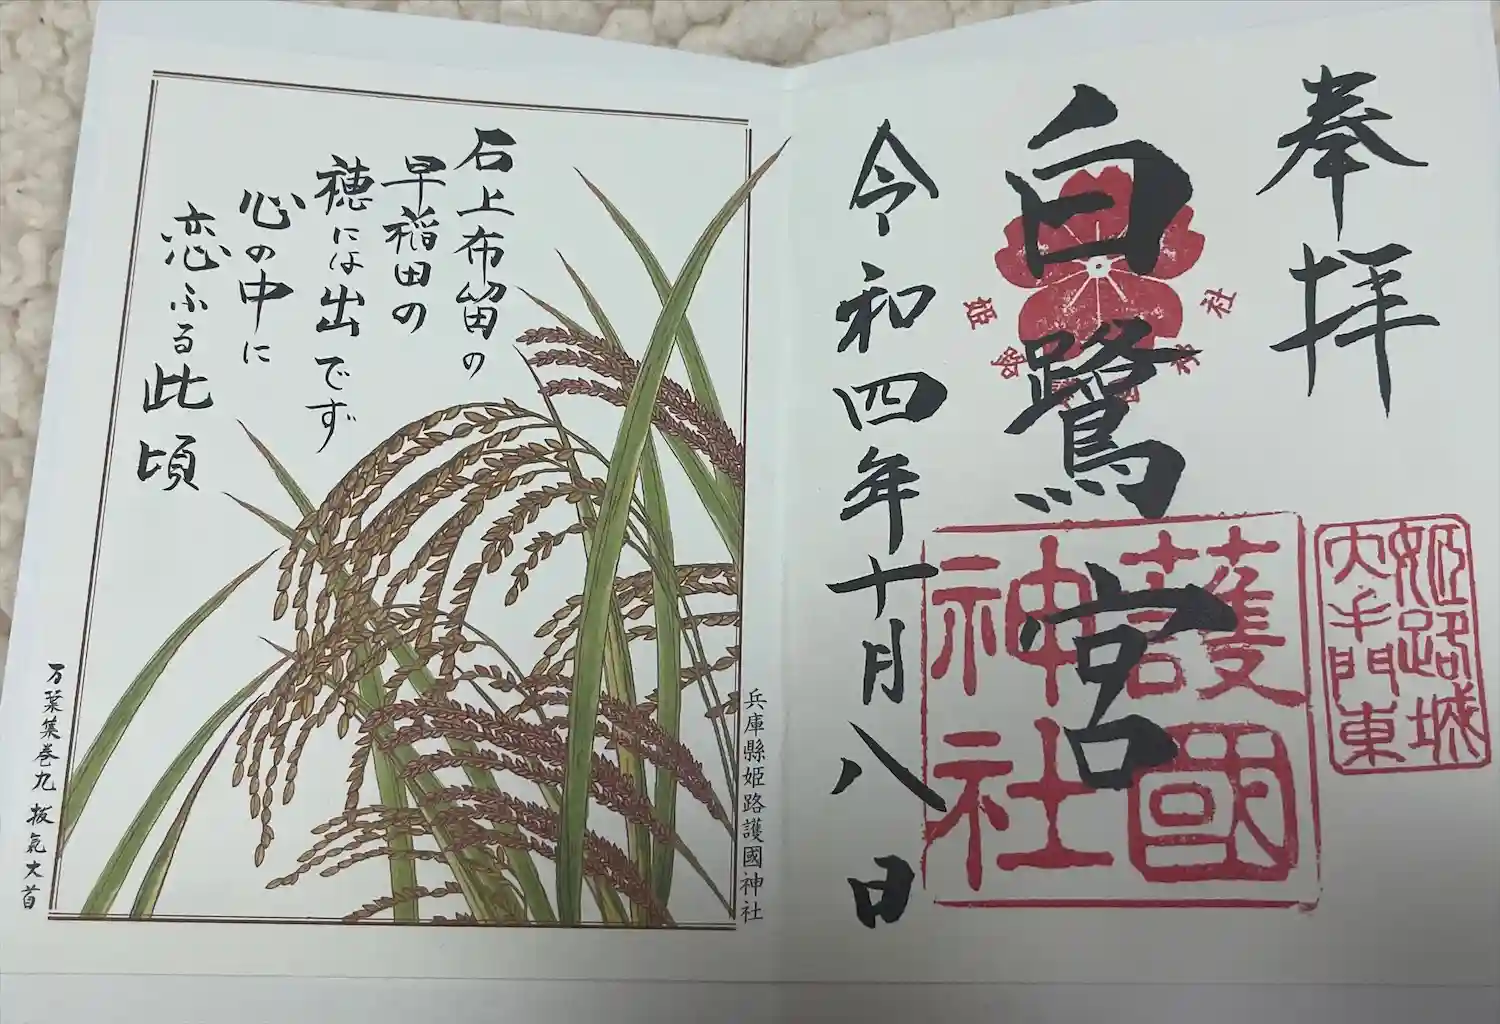 奉拝
白鷺宮
姫路
神社
護國
神社
姫路城
大手門東
令和四年十月八日
石上布留の
早稲田の
穂には出でず
心の中に
恋ふる此頃
兵庫縣姫路護國神社
万葉集巻九 抜氣大首